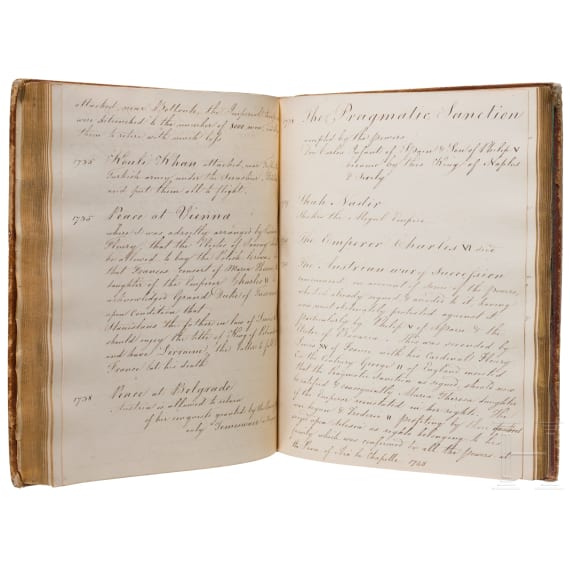 attacked, near Bellonte, the Imperial
was detached to the number of 8000 men
them to retire with much loss
1735 Kouli Khan attacked, near
Turkish army, under the Seraskier
and put them all to flight.
1735 Peace at Vienna
where it was adroitly arranged by
Fleury, that the
be allowed to buy the
that Francis Consort of Maria
daughter of the Emperor Charles VI
acknowledged Grand Duke of
upon Condition that
Stanislaus the father in law of Louis
should enjoy the title of King of
and have Lorraine, the latter to fall
France at his death
1738 Peace at Belgrade
Austria is allowed to retain
of her conquests granted by the
only Temeswar
The Pragmatic Sanction
accepted by the powers
Don Carlos Infant of Spain & Son of Philip V
became by this King of Naples
& Sicily
Shah Nadir
Shakes the Mogul Empire
The Emperor Charles VI died
The Austrian war of Succession
commenced on account of some of the powers,
which already signed & acceded to it having
was most obstinately protested against it
particularly by Philip V of Spain & the
Elector of Bavaria. This was seconded by
Louis XV of France with his Cardinal Fleury
On the Contrary George II of England insisted
that the Pragmatic Sanction as signed, should now
be ratified & consequently Maria Theresa daughter
of the Emperor reinstated in her rights. The
war began & Frederic II profiting by these
upon Silesia as rights belonging to his
family which was confirmed by all the powers at
the Peace of Aix la Chapelle 1748